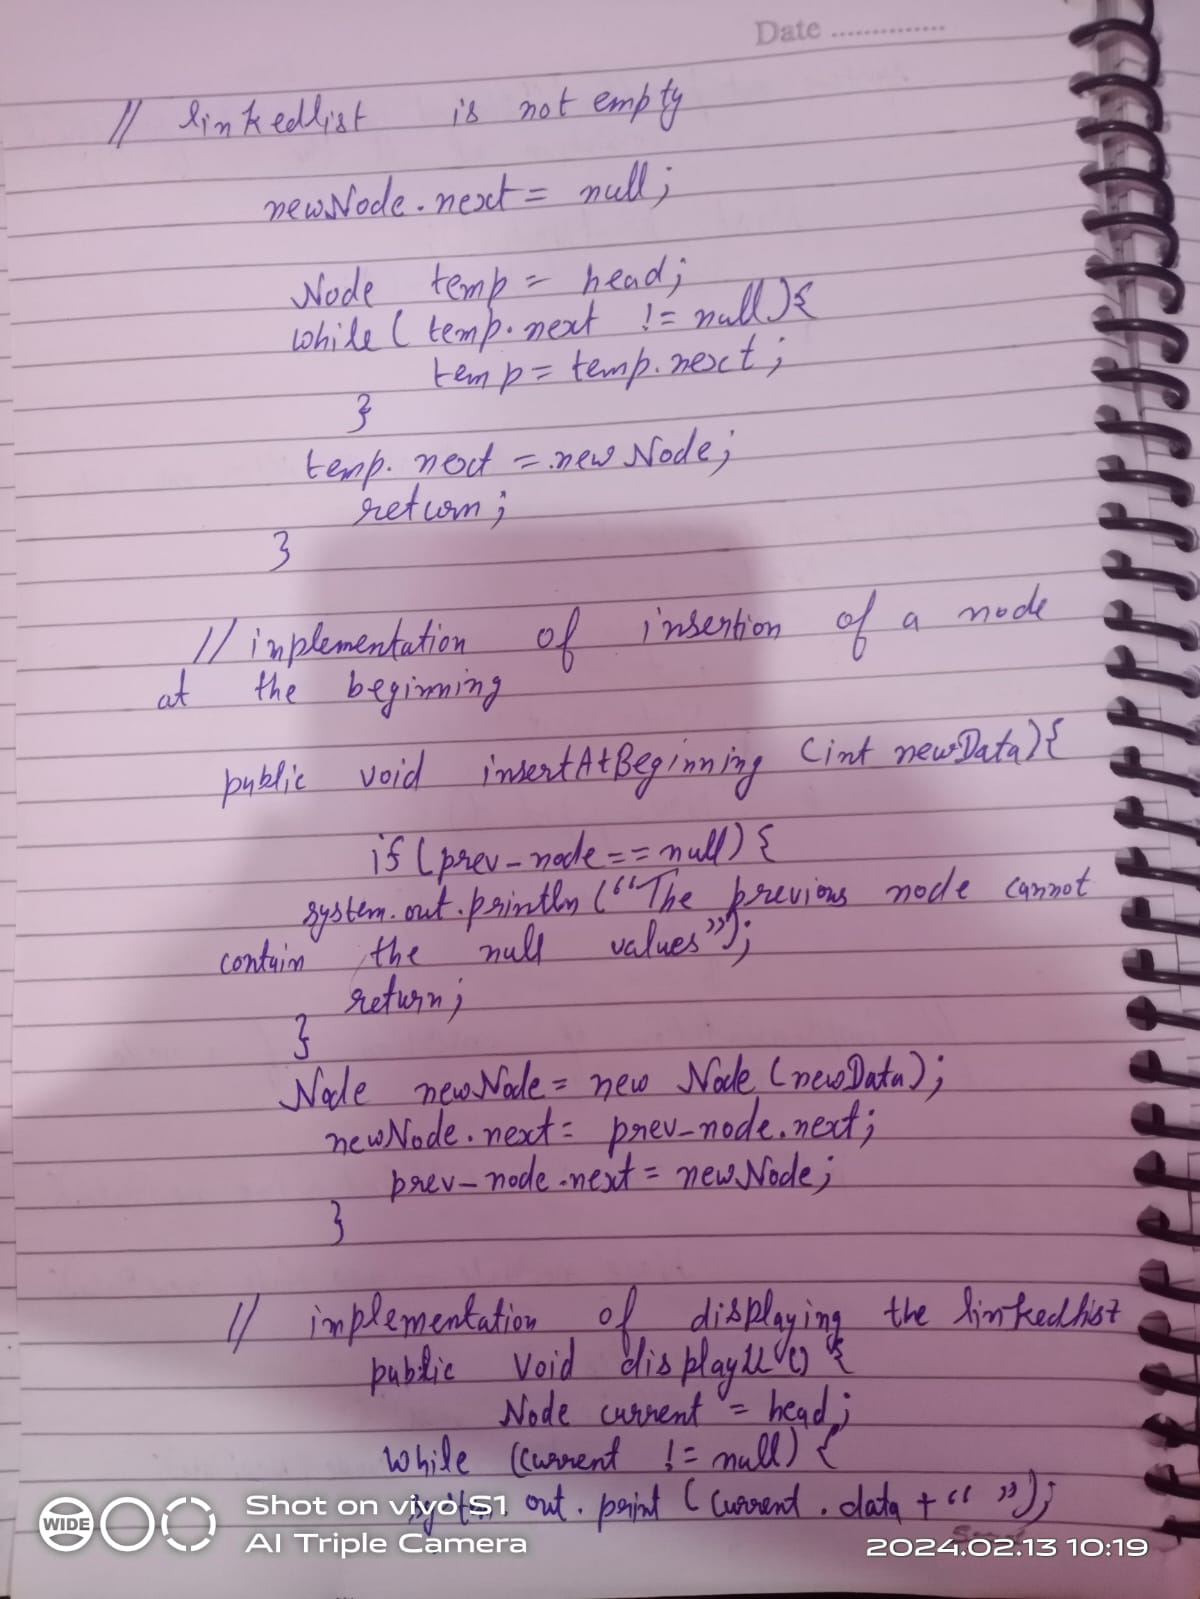 Date ..............
// linkedlist is not empty
newNode.next = null;
Node temp = head;
while ( temp.next != null ){
temp = temp.next;
}
temp.next = newNode;
return;
}
// implementation of insertion of a node
at the beginning
public void insertAtBeginning (int newData){
if (prev_node == null) {
system.out.println (“The previous node cannot
contain the null values”);
return;
}
Node newNode = new Node (newData);
newNode.next = prev_node.next;
prev_node.next = newNode;
}
// implementation of displaying the linkedlist
public void displayll () {
Node current = head;
while (current != null) {
out.print (current.data + “ ”);
WIDE
Shot on vivo S1
AI Triple Camera
2024.02.13 10:19